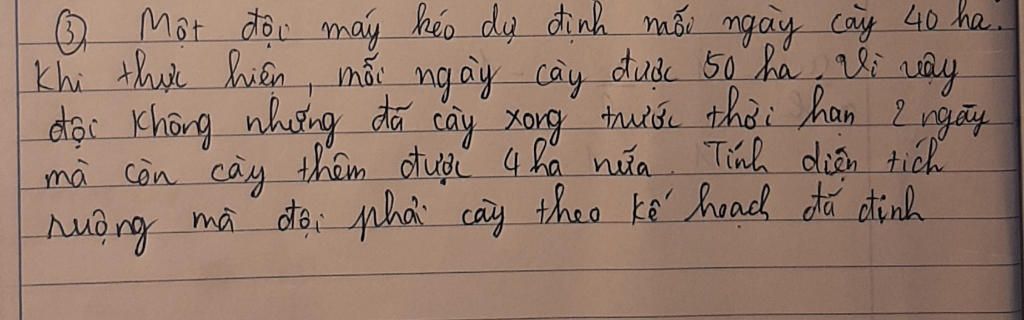 ③ Một đội máy kéo dự định mỗi ngày cày 40 ha.
Khi thực hiện, mỗi ngày cày được 50 ha. Vì vậy
đội không những đã cày xong trước thời hạn 2 ngày
mà còn cày thêm được 4 ha nữa. Tính diện tích
ruộng mà đội phải cày theo kế hoạch đã định